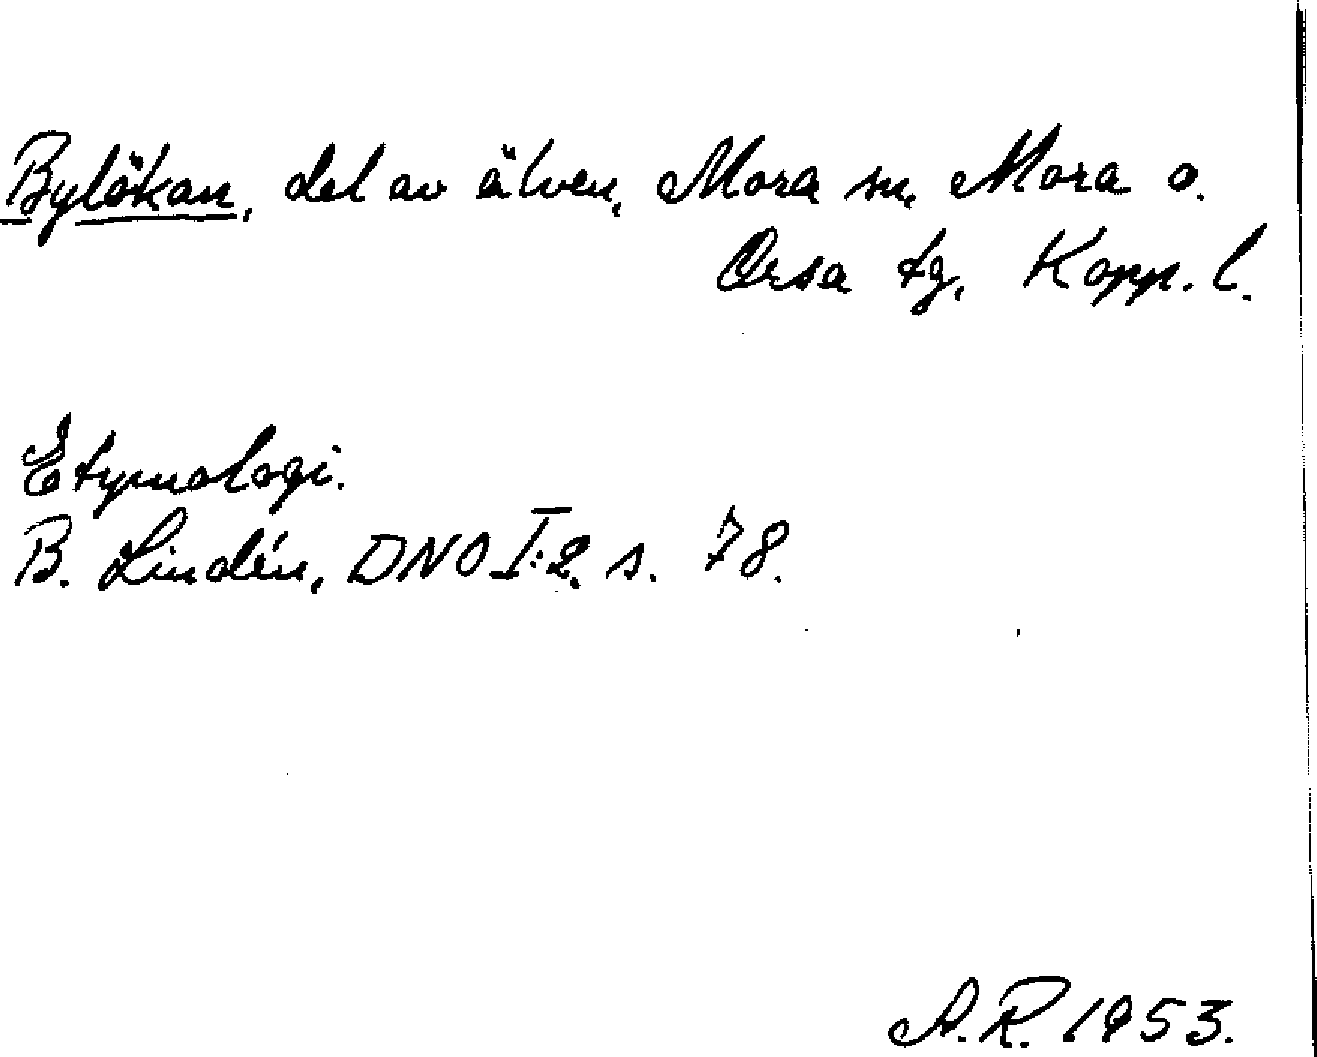 Bylökan, del av älven, Mora sn, Mora o.
Orsa tg, Kopp. l.
Etymologi.
B. Lindén, DNO I:2, s. 78.
A.R. 1953.